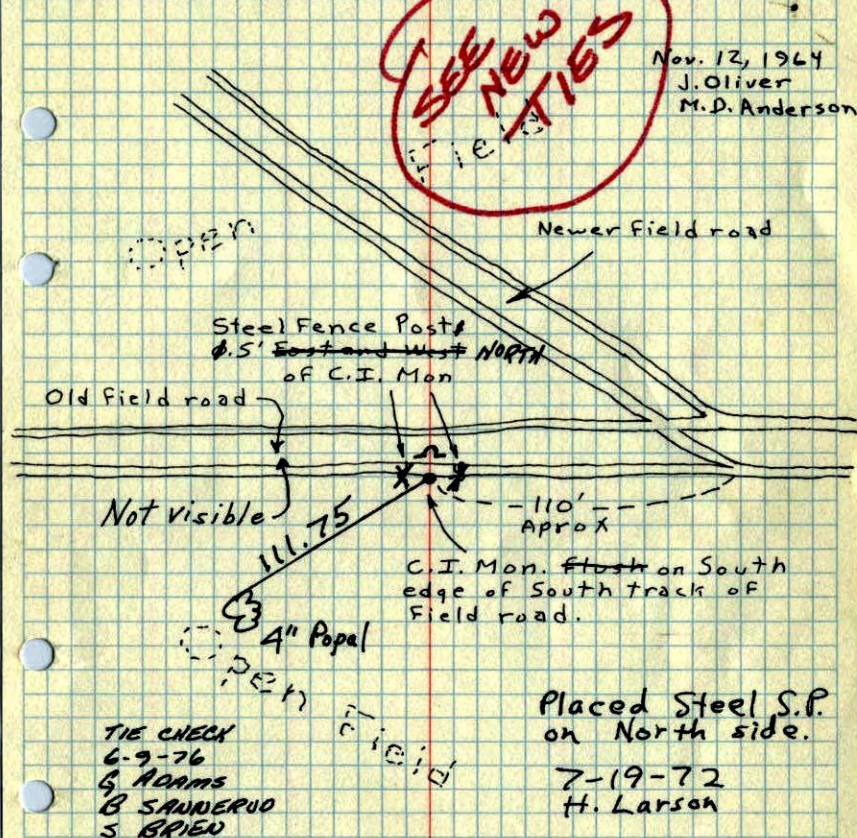 SEE
NEW
TIES
Nov. 12, 1964
J. Oliver
M.D. Anderson
Open Field
Newer Field road
Steel Fence Post
.5' East and West NORTH
of C.I. Mon
Old Field road
Not visible
111.75
110'
Aprox
C.I. Mon. Flush on South
edge of South track of
Field road.
4" Popal
Open Field
Placed Steel S.P.
on North side.
7-19-72
H. Larson
TIE CHECK
6-9-76
G ADAMS
B SANNERUD
S BRIEN